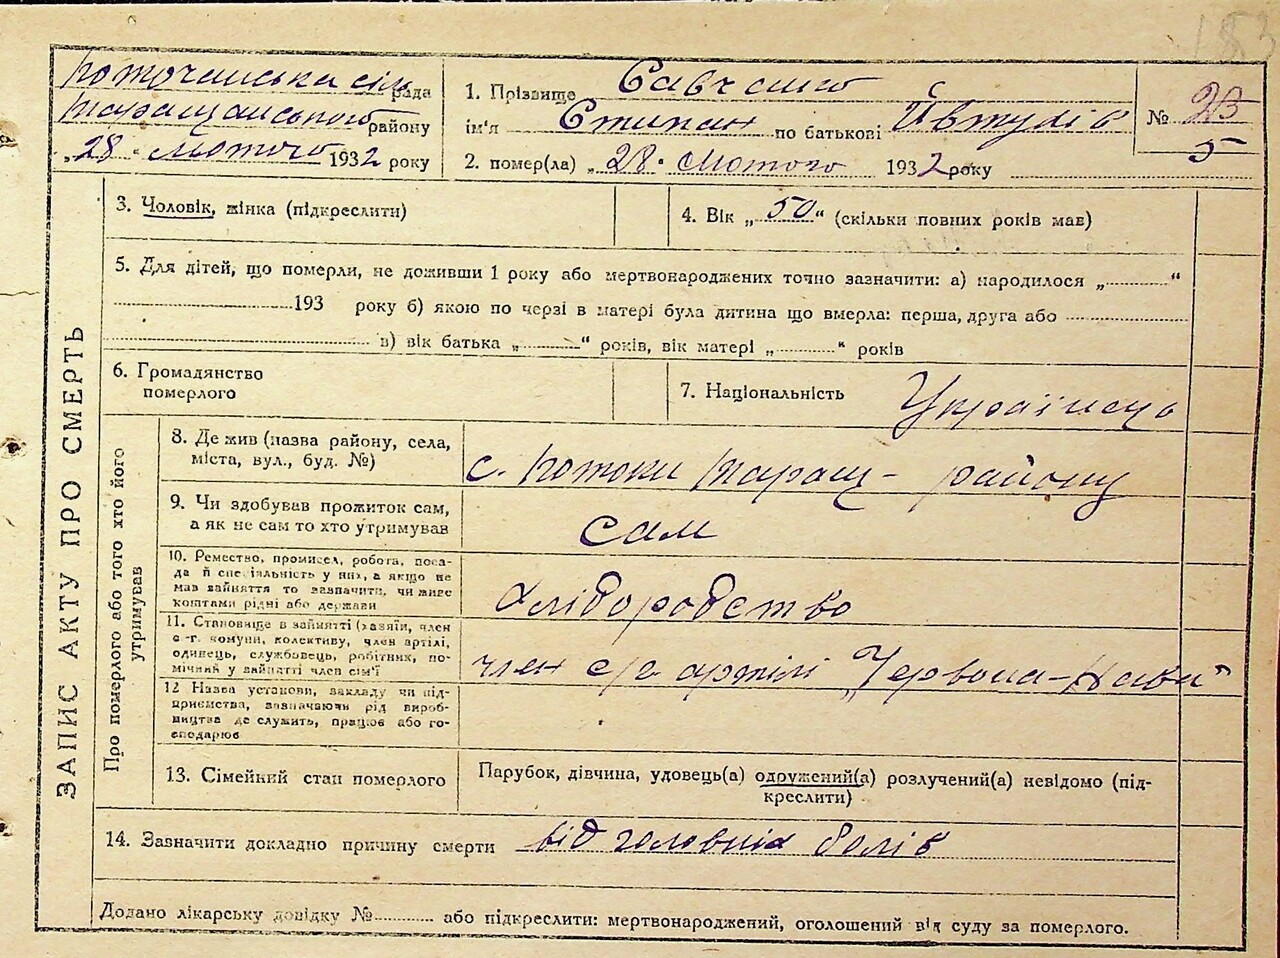 183
Поточанська сіль рада
Таращанського району
„28“ Лютого 1932 року
1. Прізвище Савченко
ім'я Степан по батькові Йвтухів
2. помер(ла) „28. Лютого 1932 року
№ 23
5
3. Чоловік, жінка (підкреслити)
4. Вік „50“ (скільки повних років мав)
5. Для дітей, що померли, не доживши 1 року або мертвонароджених точно зазначити: а) народилося „ “
193 року б) якою по черзі в матері була дитина що вмерла: перша, друга або
в) вік батька „ “ років, вік матері „ “ років
6. Громадянство
померлого
7. Національність Українець
ЗАПИС АКТУ ПРО СМЕРТЬ
Про померлого або того хто його
утримував
8. Де жив (назва району, села,
міста, вул., буд. №)
с. Потоки Таращ- району
9. Чи здобував прожиток сам,
а як не сам то хто утримував
сам
10. Ремество, промисел, робота, поса-
да й спеціяльність у них, а якщо не
мав зайняття то зазначити, чи живе
коштами рідні або держави
Хліборобство
11. Становище в зайнятті (хазяїн, член
с -г. комуни, колективу, член артілі,
одинець, службовець, робітник, по-
мічний у зайнятті член сім'ї
член с/г артілі „Червона-Нива"
12 Назва установи, закладу чи під-
приємства, зазначаючи рід вироб-
ництва де служить, працює або го-
сподарює
13. Сімейний стан померлого
Парубок, дівчина, удовець(а) одружений(а) розлучений(а) невідомо (під-
креслити)
14. Зазначити докладно причину смерти від головних болів
Додано лікарську довідку № або підкреслити: мертвонароджений, оголошений від суду за померлого.